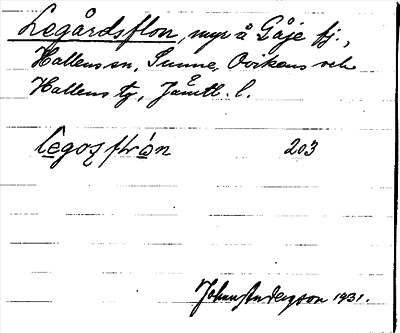 Legårdsflon, myr å Gåje fj.,
Hallens sn, Sunne, Ovikens och
Hallens tg, Jämtl. l.
legoşflơn 203
John Anderzson 1931.